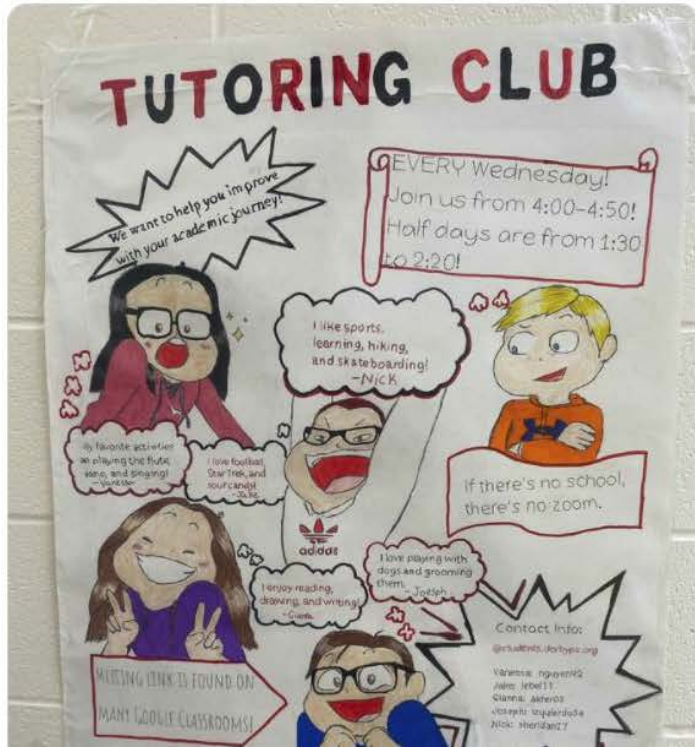 TUTORING CLUB
We want to help you improve
with your academic journey!
EVERY Wednesday!
Join us from 4:00-4:50!
Half days are from 1:30
to 2:20!
I like sports,
learning, hiking,
and skateboarding!
-Nick
My favorite activities
are playing the flute,
and singing!
-Vanessa
I love football,
Star Trek, and
sour candy!
-Jake
If there's no school,
there's no zoom.
adidas
I enjoy reading,
drawing, and writing!
-Gianna
I love playing with
dogs and grooming
them.
-Joseph
MEETING LINK IS FOUND ON
MANY GOOGLE CLASSROOMS!
Contact Info:
@students.derbyps.org
Vanessa:
Jake: lebel11
Gianna:
Joseph:
Nick: sheridan27